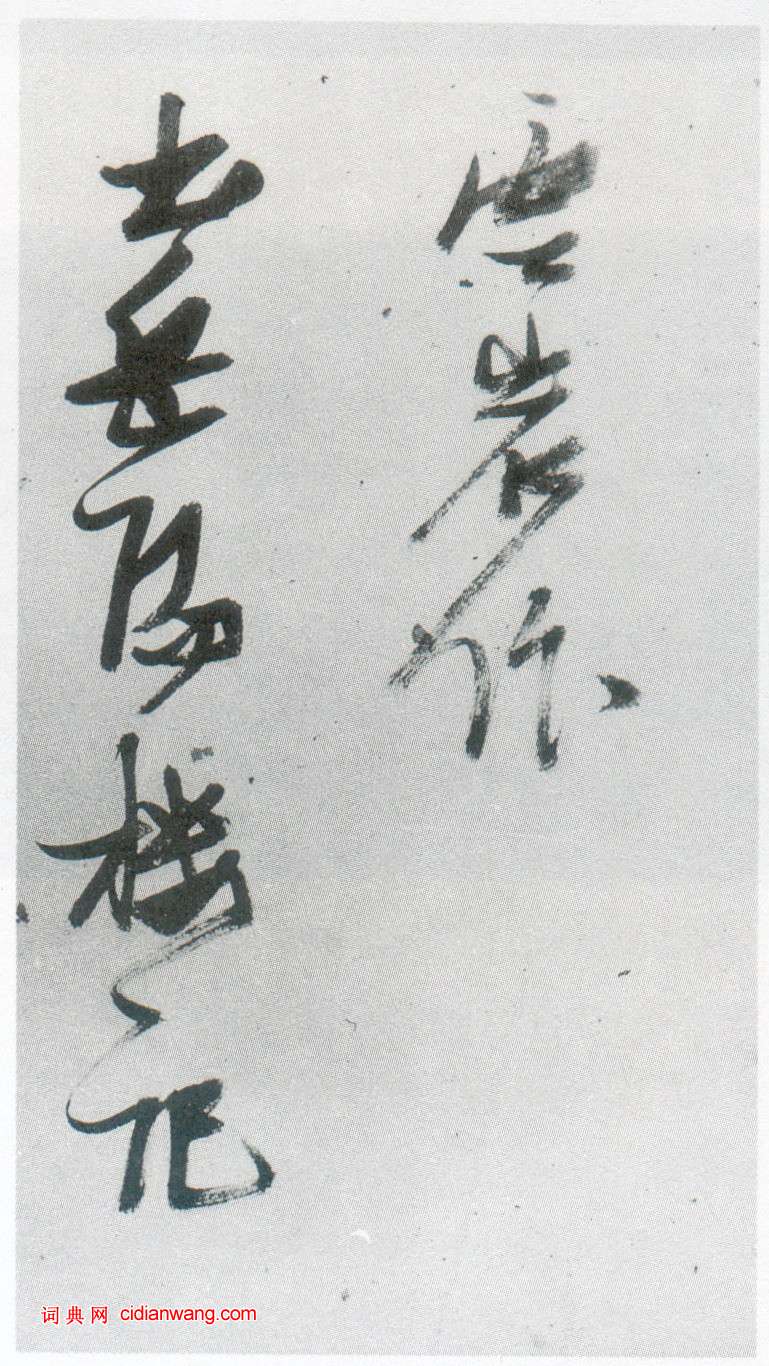 岩作
書岳陽樓記
词典网 cidianwang.com